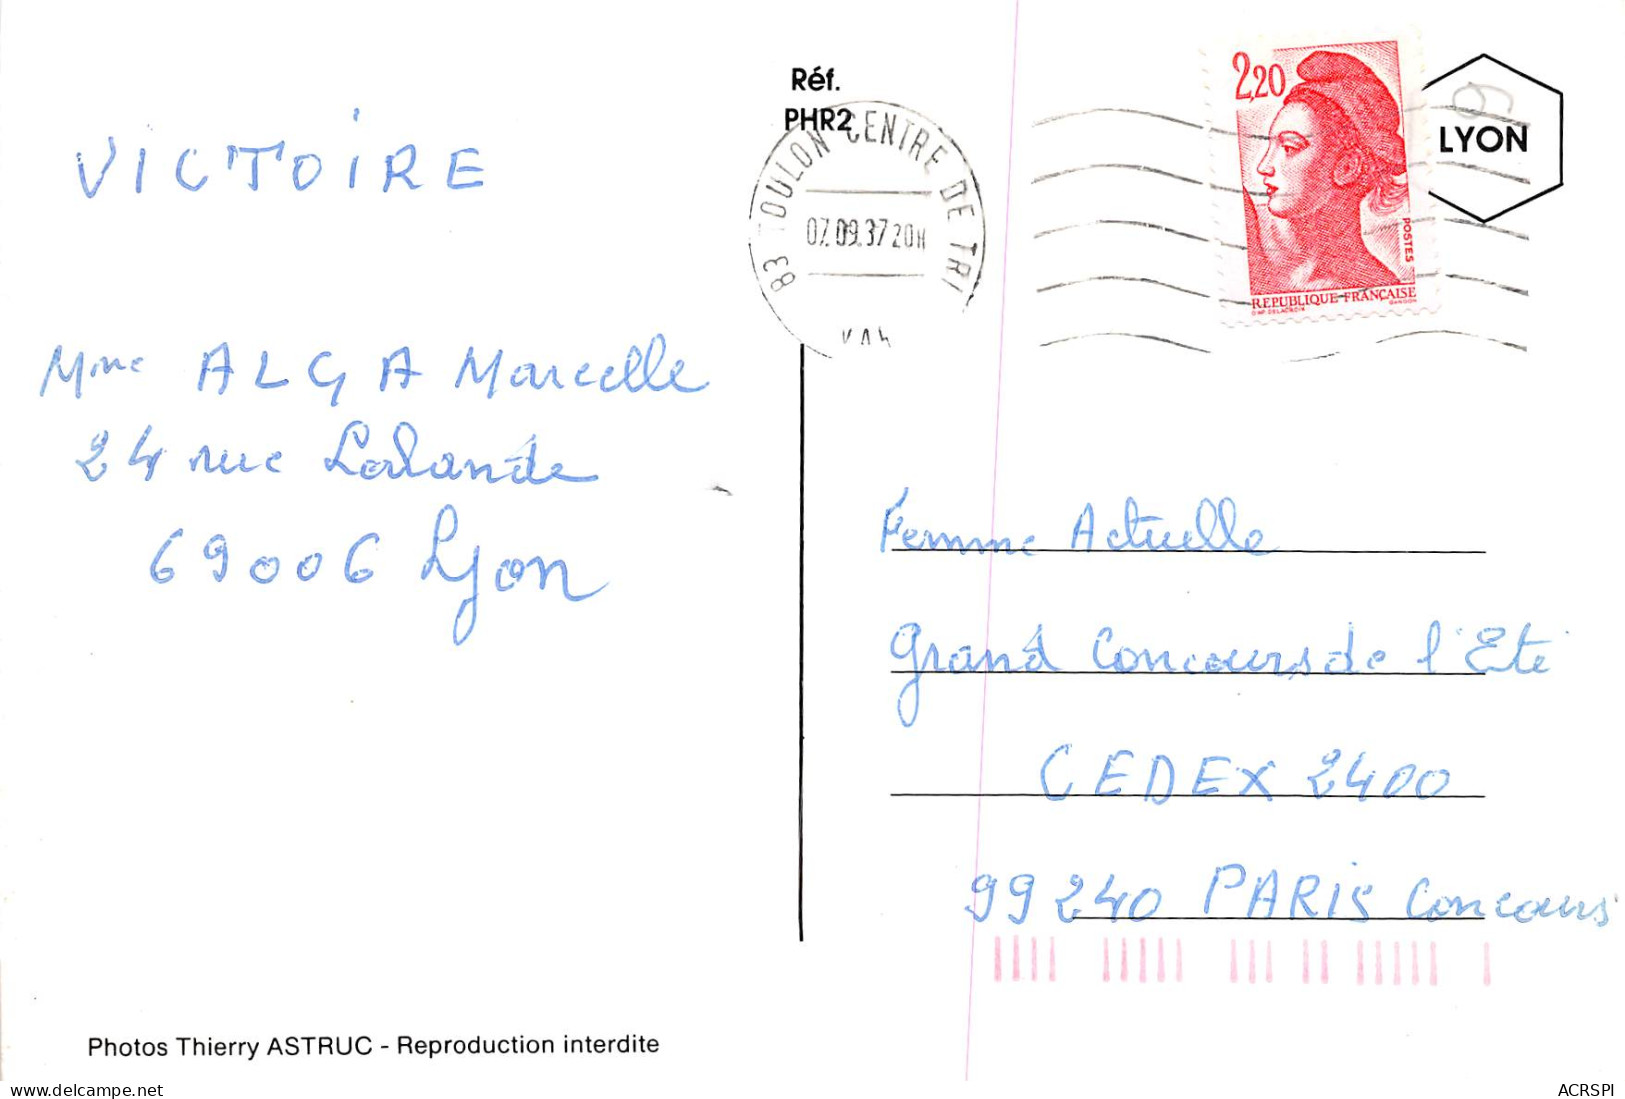 Réf.
PHR2
VICTOIRE
Mme ALGA Marcelle
24 rue Lalande
69006 Lyon
83 TOULON CENTRE DE TRI
07.09.37 20H
VAR
2,20
POSTES
REPUBLIQUE FRANÇAISE
D'AP DELACROIX
GANDON
LYON
Femme Actuelle
Grand Concours de l'Eté
CEDEX 2400
99240 PARIS Concours
Photos Thierry ASTRUC - Reproduction interdite
www.delcampe.net
ACRSPI